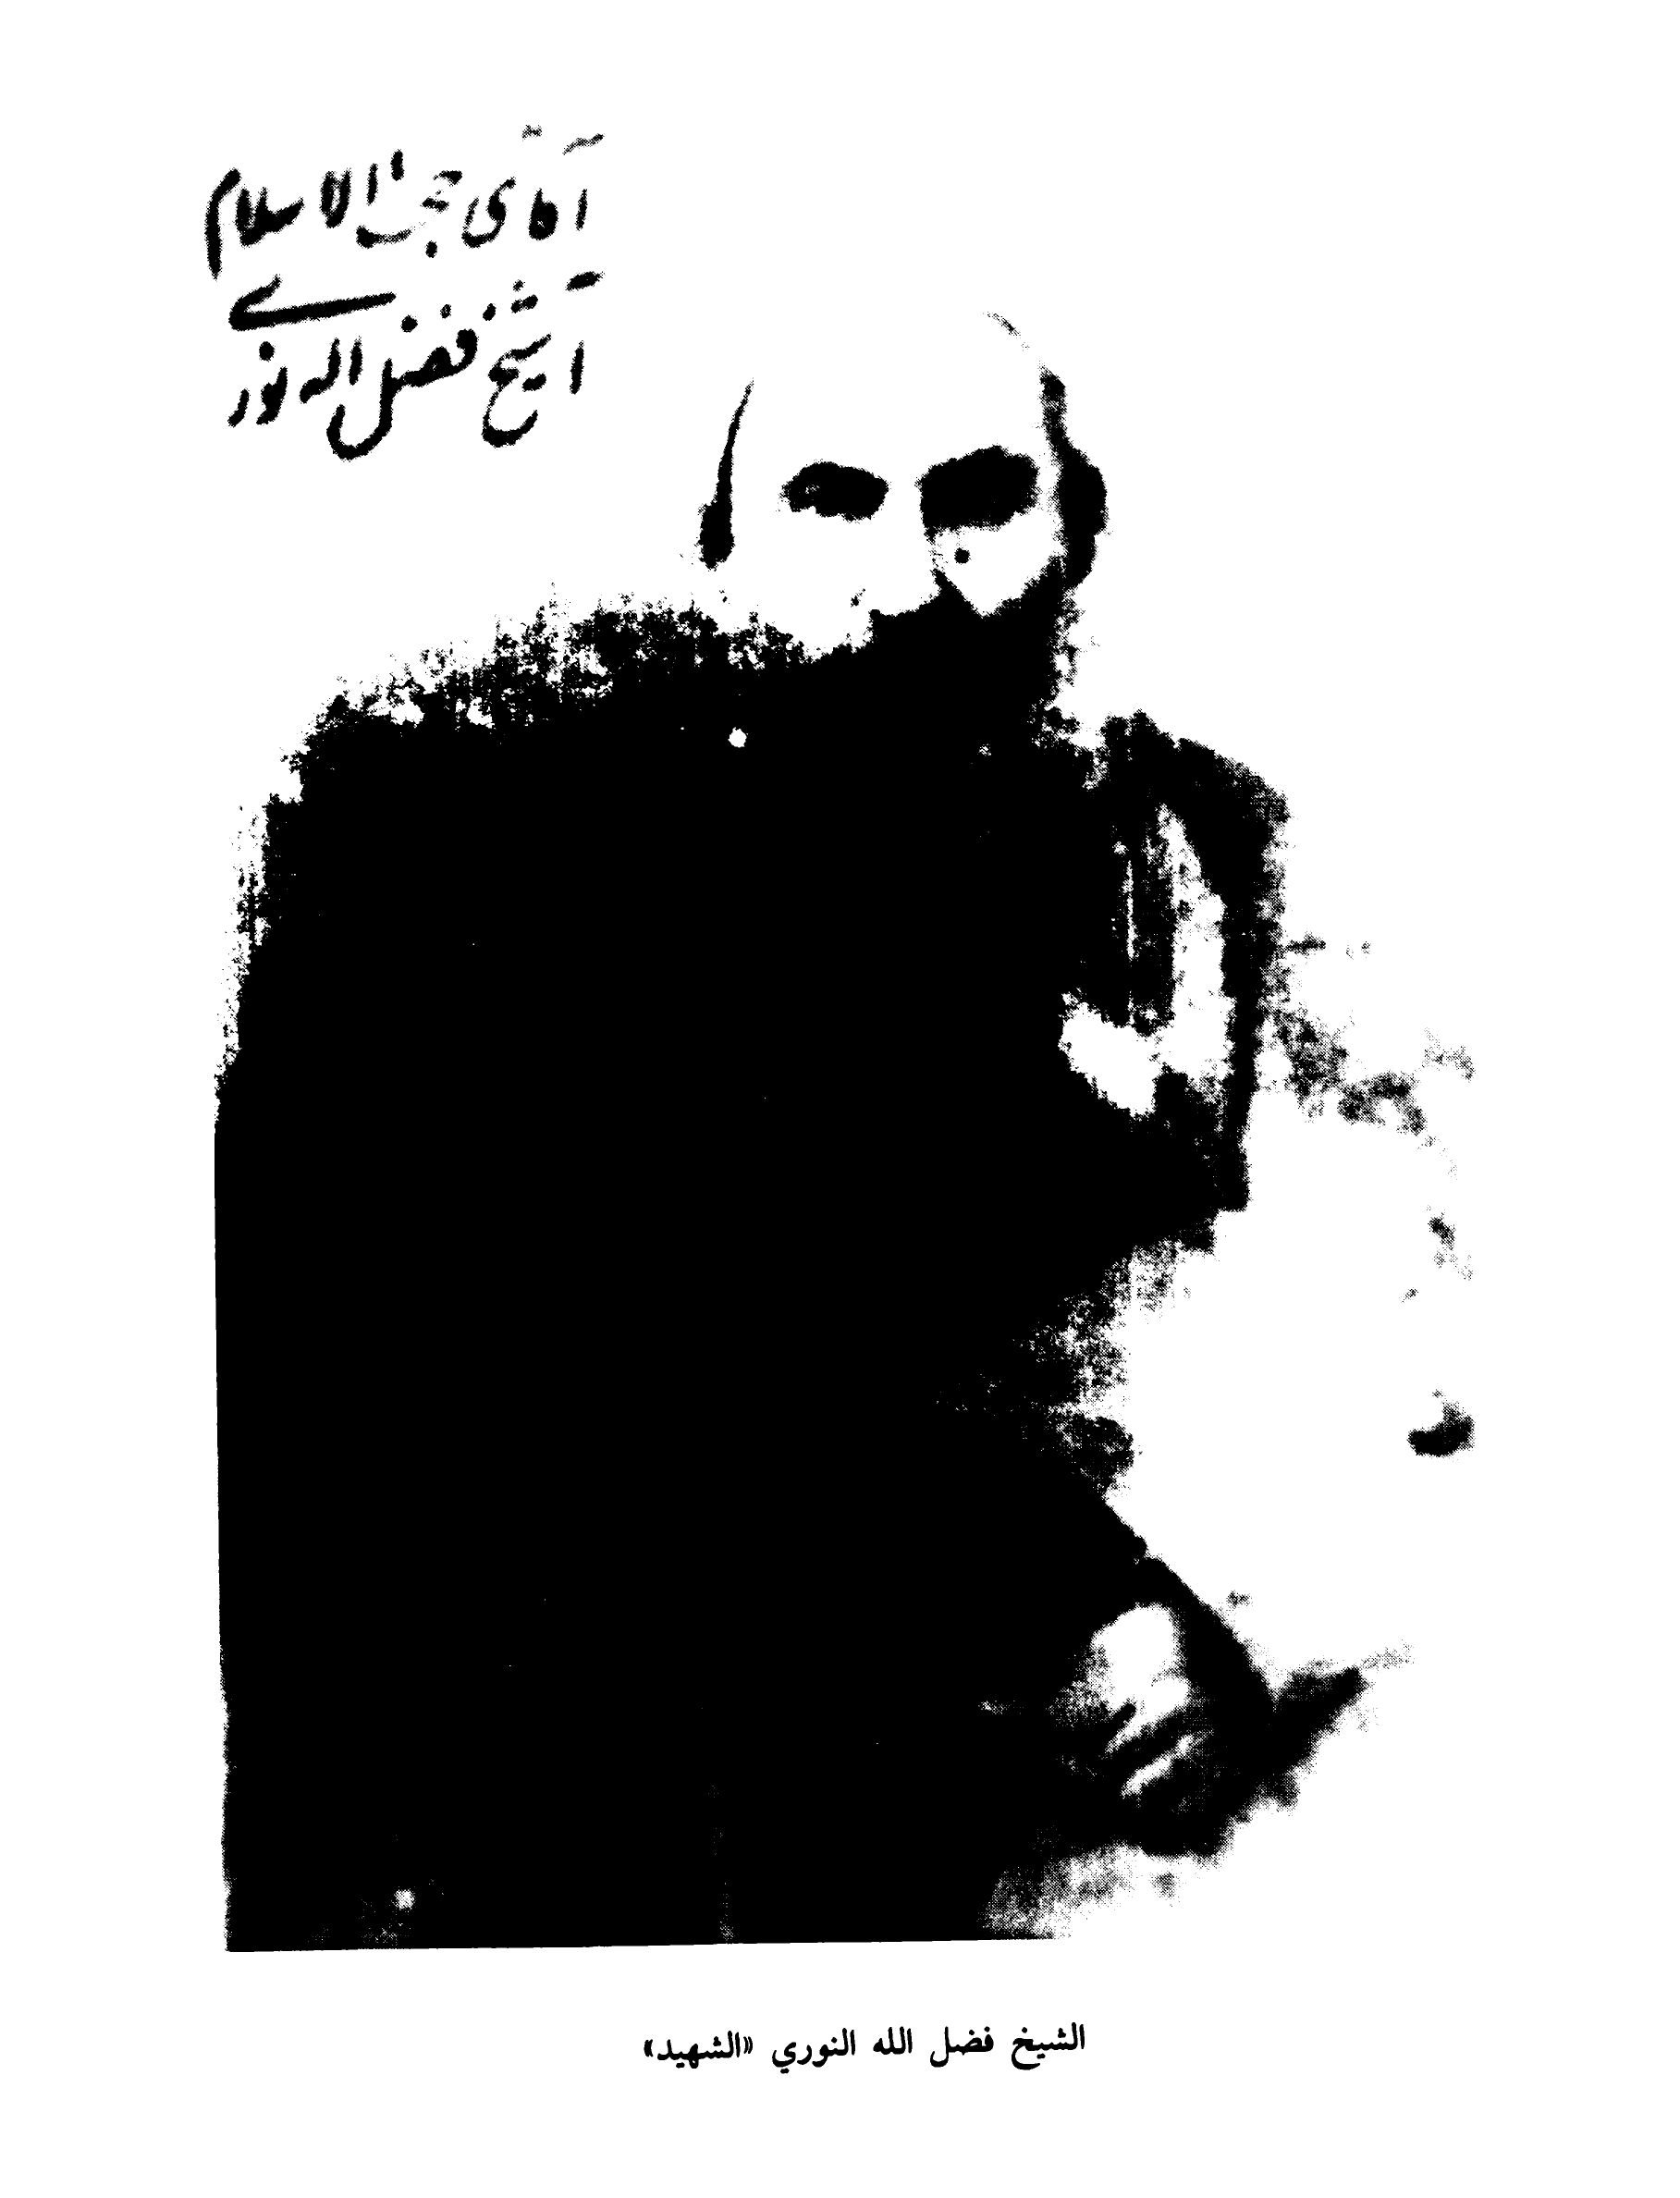 آقای حجة الاسلام
آشیخ فضل اله نوری
الشيخ فضل الله النوري «الشهيد»